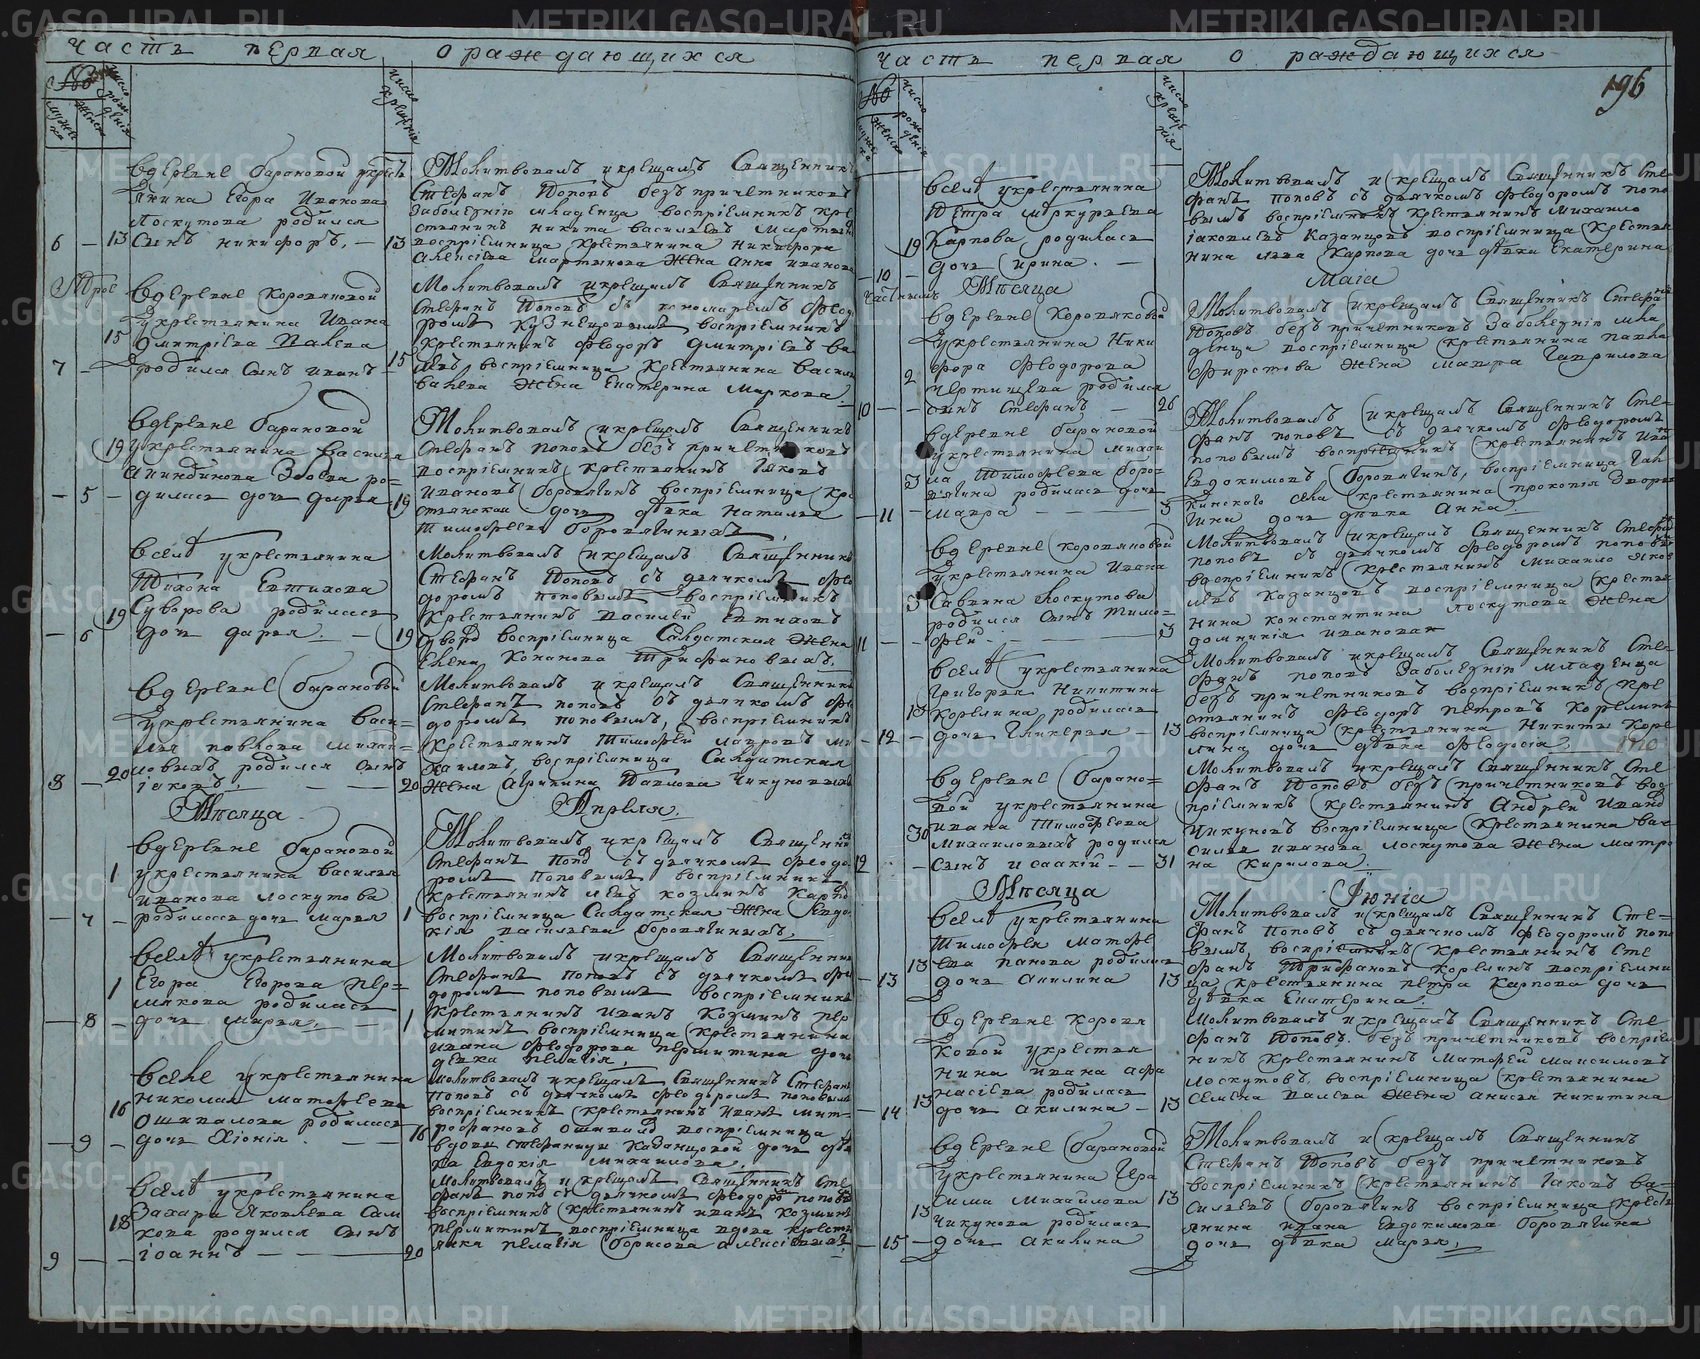 METRIKI.GASO-URAL.RU
часть первая о раждающихся
№
мужеска
женска
число рождения
число крещения
вдеревне барановой укресть
янина Егора Иванова
Лоскутова родился
6 – 13 сынъ никифоръ. – 13
Молитвовалъ и крещалъ Священникъ
Стефанъ Поповъ безъ причетниковъ
Заболезнію младенца восприемникъ кре
стьянинъ никита василиевъ мартын
восприемница крестьянина никифора
алексиева мартынова жена анна иванова
вдеревне Коровяковой
укрестьянина Ивана
15 Димитриева Валева
7 – родился сынъ иванъ – 15
Молитвовалъ и крещалъ Священникъ
Стефанъ Поповъ съ пономаремъ феод
ромъ Кузнецовымъ восприемникъ
крестьянинъ феодоръ димитриевъ ва
левъ восприемница крестьянина васили
валева жена Екатерина Маркова.
вдеревне барановой
19 укрестьянина василья
– 5 – дилась дочь дарья 19
Молитвовалъ и крещалъ Священникъ
Стефанъ поповъ безъ причетниковъ
восприемникъ крестьянинъ Іаковъ
ивановъ боровягинъ восприемница кре
стьянская дочь девка наталья
тимофеева боровягиныхъ
вселе укрестьянина
Тихона Евтихова
19 Суворова родилась
– 6 – дочь дарья. – 19
Молитвовалъ и крещалъ Священникъ
Стефанъ Поповъ съ дьячкомъ фео
доромъ поповымъ восприемникъ
крестьянинъ василей Евтиховъ
восприемница Салдатская жена
Елена Конанова Трифановыхъ.
вдеревне барановой
укрестьянина васи=
лья павлова михай=
ловыхъ родился сынъ
8 – 20 іаковъ. – 20
Молитвовалъ и крещалъ Священникъ
Стефанъ поповъ съ дьячкомъ фе
доромъ поповымъ, восприемникъ
крестьянинъ Тимофей лавровъ ми
хаиловъ, восприемница Салдатская
жена Агрипина Павлова Чикуновыхъ
Месяца Апреля.
вдеревне барановой
1 укрестьянина василья
иванова лоскутова
– 7 – родилась дочь марья 1
Молитвовалъ и крещалъ Священни
Стефанъ Попо съ дьячкомъ феодо
ромъ Поповымъ восприемникъ
крестьянинъ левъ козминъ Карпо
восприемница Салдатская жена Евдо
кия василиева боровягиныхъ.
вселе укрестьянина
1 Егора Егорова пер=
мякова родилась
– 8 – дочь марья. 1
Молитвовалъ и крещалъ Священни
Стефанъ поповъ съ дьячкомъ фе
доромъ поповымъ восприемникъ
крестьянинъ Иванъ Козминъ пер
митинъ восприемница крестьянина
ивана феодорова пермитина дочь
девка пелагія,
вселе укрестьянина
николая матофеева
16 Ошивалова родилась
– 9 – дочь Хіонія. 16
Молитвовалъ и крещалъ Священникъ Стефанъ
поповъ съ дьячкомъ феодоромъ поповымъ
восприемникъ крестьянинъ Иванъ мит=
рофановъ Ошивало восприемница
вдовы стефаниды казанцовой дочь дев
ка Евдокія михаилова.
вселе укрестьянина
Захара Яковлева Сам
18 кова родился сынъ
9 – іоаннъ – 20
Молитвовалъ и крещалъ Священникъ Сте
фанъ попо съ дьячкомъ феодоро попов
восприемникъ крестьянинъ иванъ козминъ
пермитинъ восприемница вдова кресть
янка пелагія борисова алексиевыхъ
часть первая о раждающихся
196
№
мужеска
женска
число рождения
число крещения
вселе укрестьянина
Петра меркурьева
19 Карпова родилась
– 10 – дочь Ирина. –
Молитвовалъ и крещалъ Священникъ Сте=
фанъ поповъ съ дьячкомъ феодоромъ попо
вымъ восприемникъ крестьянинъ михаило
іаковлевъ Казанцовъ восприемница крестья
нина льва Карпова дочь девка Екатерина
Месяца Маіа
вдеревне Коровяковой
укрестьянина Ники
фора феодорова
2 чертищева родился
10 – – сынъ Стефанъ – 26
Молитвовалъ и крещалъ Священникъ Стефанъ
Поповъ безъ причетниковъ Заболезнію мла
денца восприемница крестьянина павла
фирстова жена мавра Гаврилова
вдеревне барановой
укрестьянина михаи
3 ла Тимофеева боро=
вягина родилась дочь
– 11 – мавра – 3
Молитвовалъ и крещалъ Священникъ Сте=
фанъ поповъ съ дьячкомъ феодоромъ
поповымъ восприемникъ крестьянинъ Ива
Евдокимовъ боровягинъ, восприемница
села крестьянина прокопія
дочь девка Анна.
вдеревне коровяковой
укрестьянина Ивана
3 Саввина Лоскутова
родился сынъ Тимо=
11 – – фей – 3
Молитвовалъ и крещалъ Священникъ Стефа
поповъ съ дьячкомъ феодоромъ поповы
восприемникъ крестьянинъ михаило яков
левъ казанцовъ восприемница крестья
нина константина лоскутова жена
домникія иванова
вселе укрестьянина
Григорья Никитина
13 Корелина родилась
– 12 – дочь Гликерья – 13
Молитвовалъ и крещалъ Священникъ Сте=
фанъ поповъ Заболезнію младенца
безъ причетниковъ восприемникъ кре
стьянинъ феодоръ петровъ Корелинъ
восприемница крестьянина Никиты Коре
лина дочь девка феодосіа.
вдеревне барано=
вой укрестьянина
30 ивана Тимофеева
михаиловыхъ родился
12 – – сынъ исаакій – 31
Молитвовалъ и крещалъ Священникъ Сте
фанъ Поповъ безъ причетниковъ вос
приемникъ крестьянинъ Андрей Ивано
Чикуновъ восприемница крестьянина ва
силья иванова лоскутова жена матро
на кирилова.
Месяца Іюніа
вселе укрестьянина
Тимофея матофе
13 ева панова родилась
– 13 – дочь акилина 13
Молитвовалъ и крещалъ Священникъ Сте=
фанъ поповъ съ дьячкомъ феодоромъ попо
вымъ, восприемникъ крестьянинъ Сте
фанъ Трифановъ Корелинъ восприемни
ца крестьянина петра карпова дочь
девка Екатерина.
вдеревне Коровя
ковой укрестья
нина ивана афа
13 насіева родилась
– 14 – дочь акилина – 13
Молитвовалъ и крещалъ Священникъ Сте
фанъ Поповъ. безъ причетниковъ восприем
никъ крестьянинъ матфей максимовъ
лоскутовъ. восприемница крестьянина
Семена валева жена анисья никитина
вдеревне барановой
укрестьянина Гера
сима михаилова
13 Чикунова родилась
– 15 – дочь акилина 13
Молитвовалъ и крещалъ Священникъ
Стефанъ Поповъ безъ причетниковъ
восприемникъ крестьянинъ Іаковъ ва=
силиевъ боровягинъ восприемница кресть
янина ивана Евдокимова боровягина
дочь девка марья.